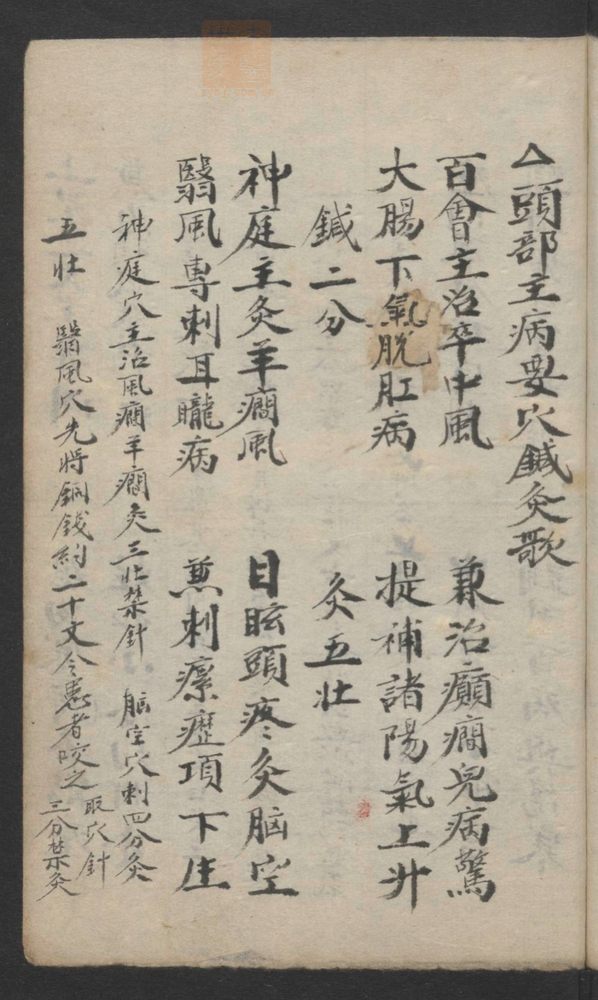 △頭部主病要穴鍼灸歌
百會主治卒中風　兼治癲癇兒病驚
大腸下氣脫肛病　提補諸陽氣上升
鍼二分　灸五壯
神庭主灸羊癇風　目眩頭疼灸腦空
翳風專刺耳聾病　兼刺瘰癧項下生
神庭穴主治風癇羊癇灸三壯禁針　腦空穴刺四分灸
五壯　翳風穴先將銅錢約二十文令患者咬之取穴針
三分禁灸